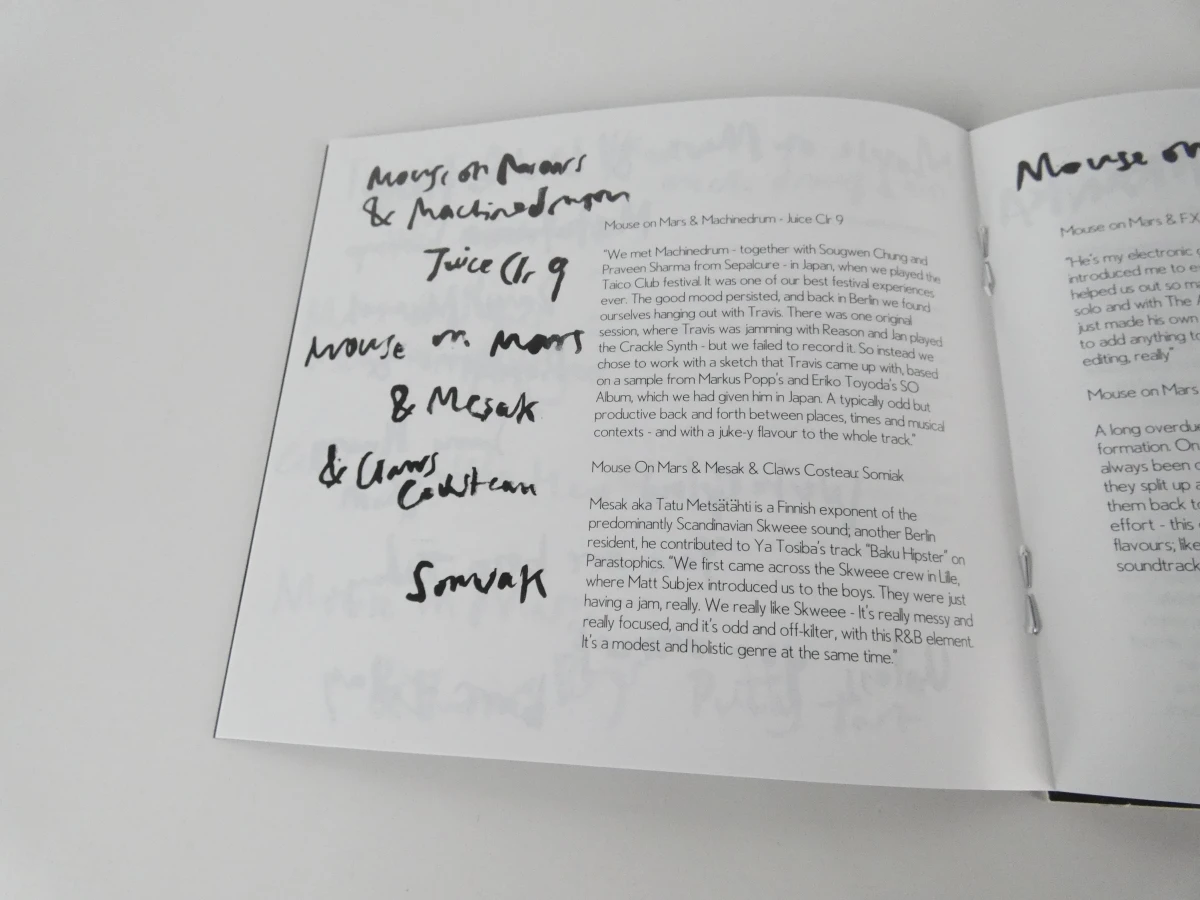 Mouse on Mars
& Machinedrum
Juice Clr 9
Mouse on Mars
& Mesak
& Claws
Costeau
Somiak
Mouse on Mars & Machinedrum - Juice Clr 9
"We met Machinedrum - together with Sougwen Chung and
Praveen Sharma from Sepalcure - in Japan, when we played the
Taico Club festival. It was one of our best festival experiences
ever. The good mood persisted, and back in Berlin we found
ourselves hanging out with Travis. There was one original
session, where Travis was jamming with Reason and Jan played
the Crackle Synth - but we failed to record it. So instead we
chose to work with a sketch that Travis came up with, based
on a sample from Markus Popp's and Eriko Toyoda's SO
Album, which we had given him in Japan. A typically odd but
productive back and forth between places, times and musical
contexts - and with a juke-y flavour to the whole track."
Mouse On Mars & Mesak & Claws Costeau: Somiak
Mesak aka Tatu Metsätähti is a Finnish exponent of the
predominantly Scandinavian Skweee sound; another Berlin
resident, he contributed to Ya Tosiba's track "Baku Hipster" on
Parastophics. "We first came across the Skweee crew in Lille,
where Matt Subjex introduced us to the boys. They were just
having a jam, really. We really like Skweee - It's really messy and
really focused, and it's odd and off-kilter, with this R&B element.
It's a modest and holistic genre at the same time."
Mouse on
Mouse on Mars & FX
"He's my electronic
introduced me to
helped us out so
solo and with The
just made his own
to add anything to
editing, really"
Mouse on Mars
A long overdue
formation. On
always been
they split up
them back to
effort - this
flavours; like
soundtrack